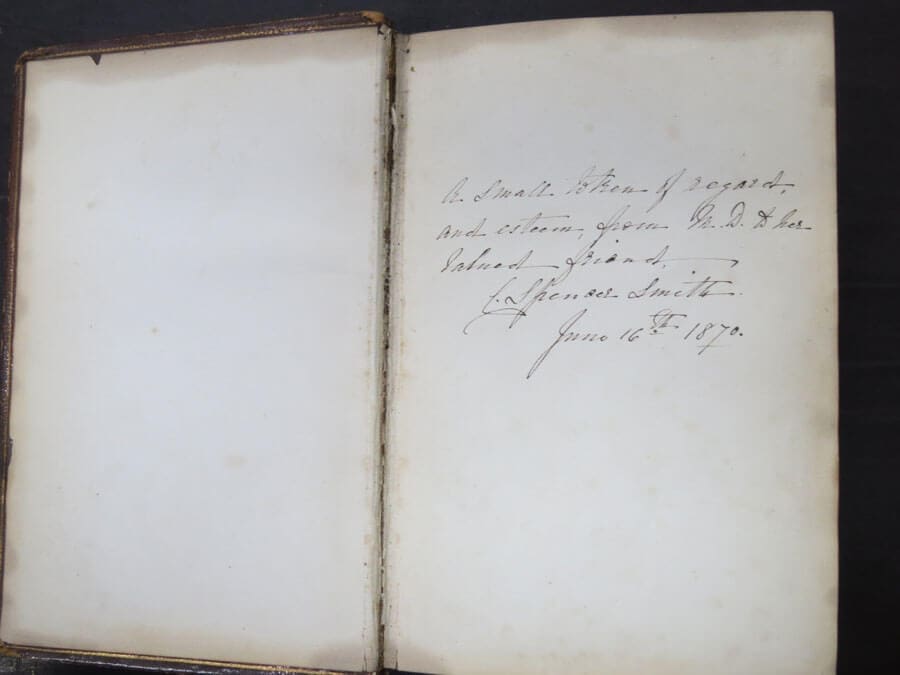 A small token of regard,
and esteem, from M. D. to her
valued friend,
C. Spencer Smith.
June 16th 1870.